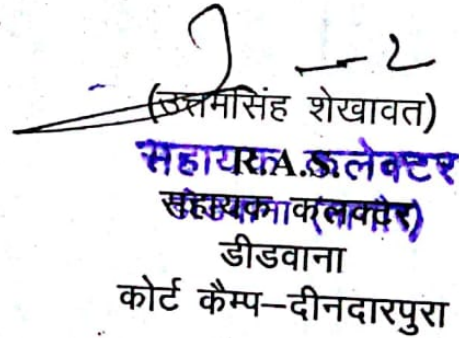 (उत्तमसिंह शेखावत)
सहायक कलेक्टर
R.A.S.
सहायक कलक्टर
डीडवाना
कोर्ट कैम्प–दीनदारपुरा